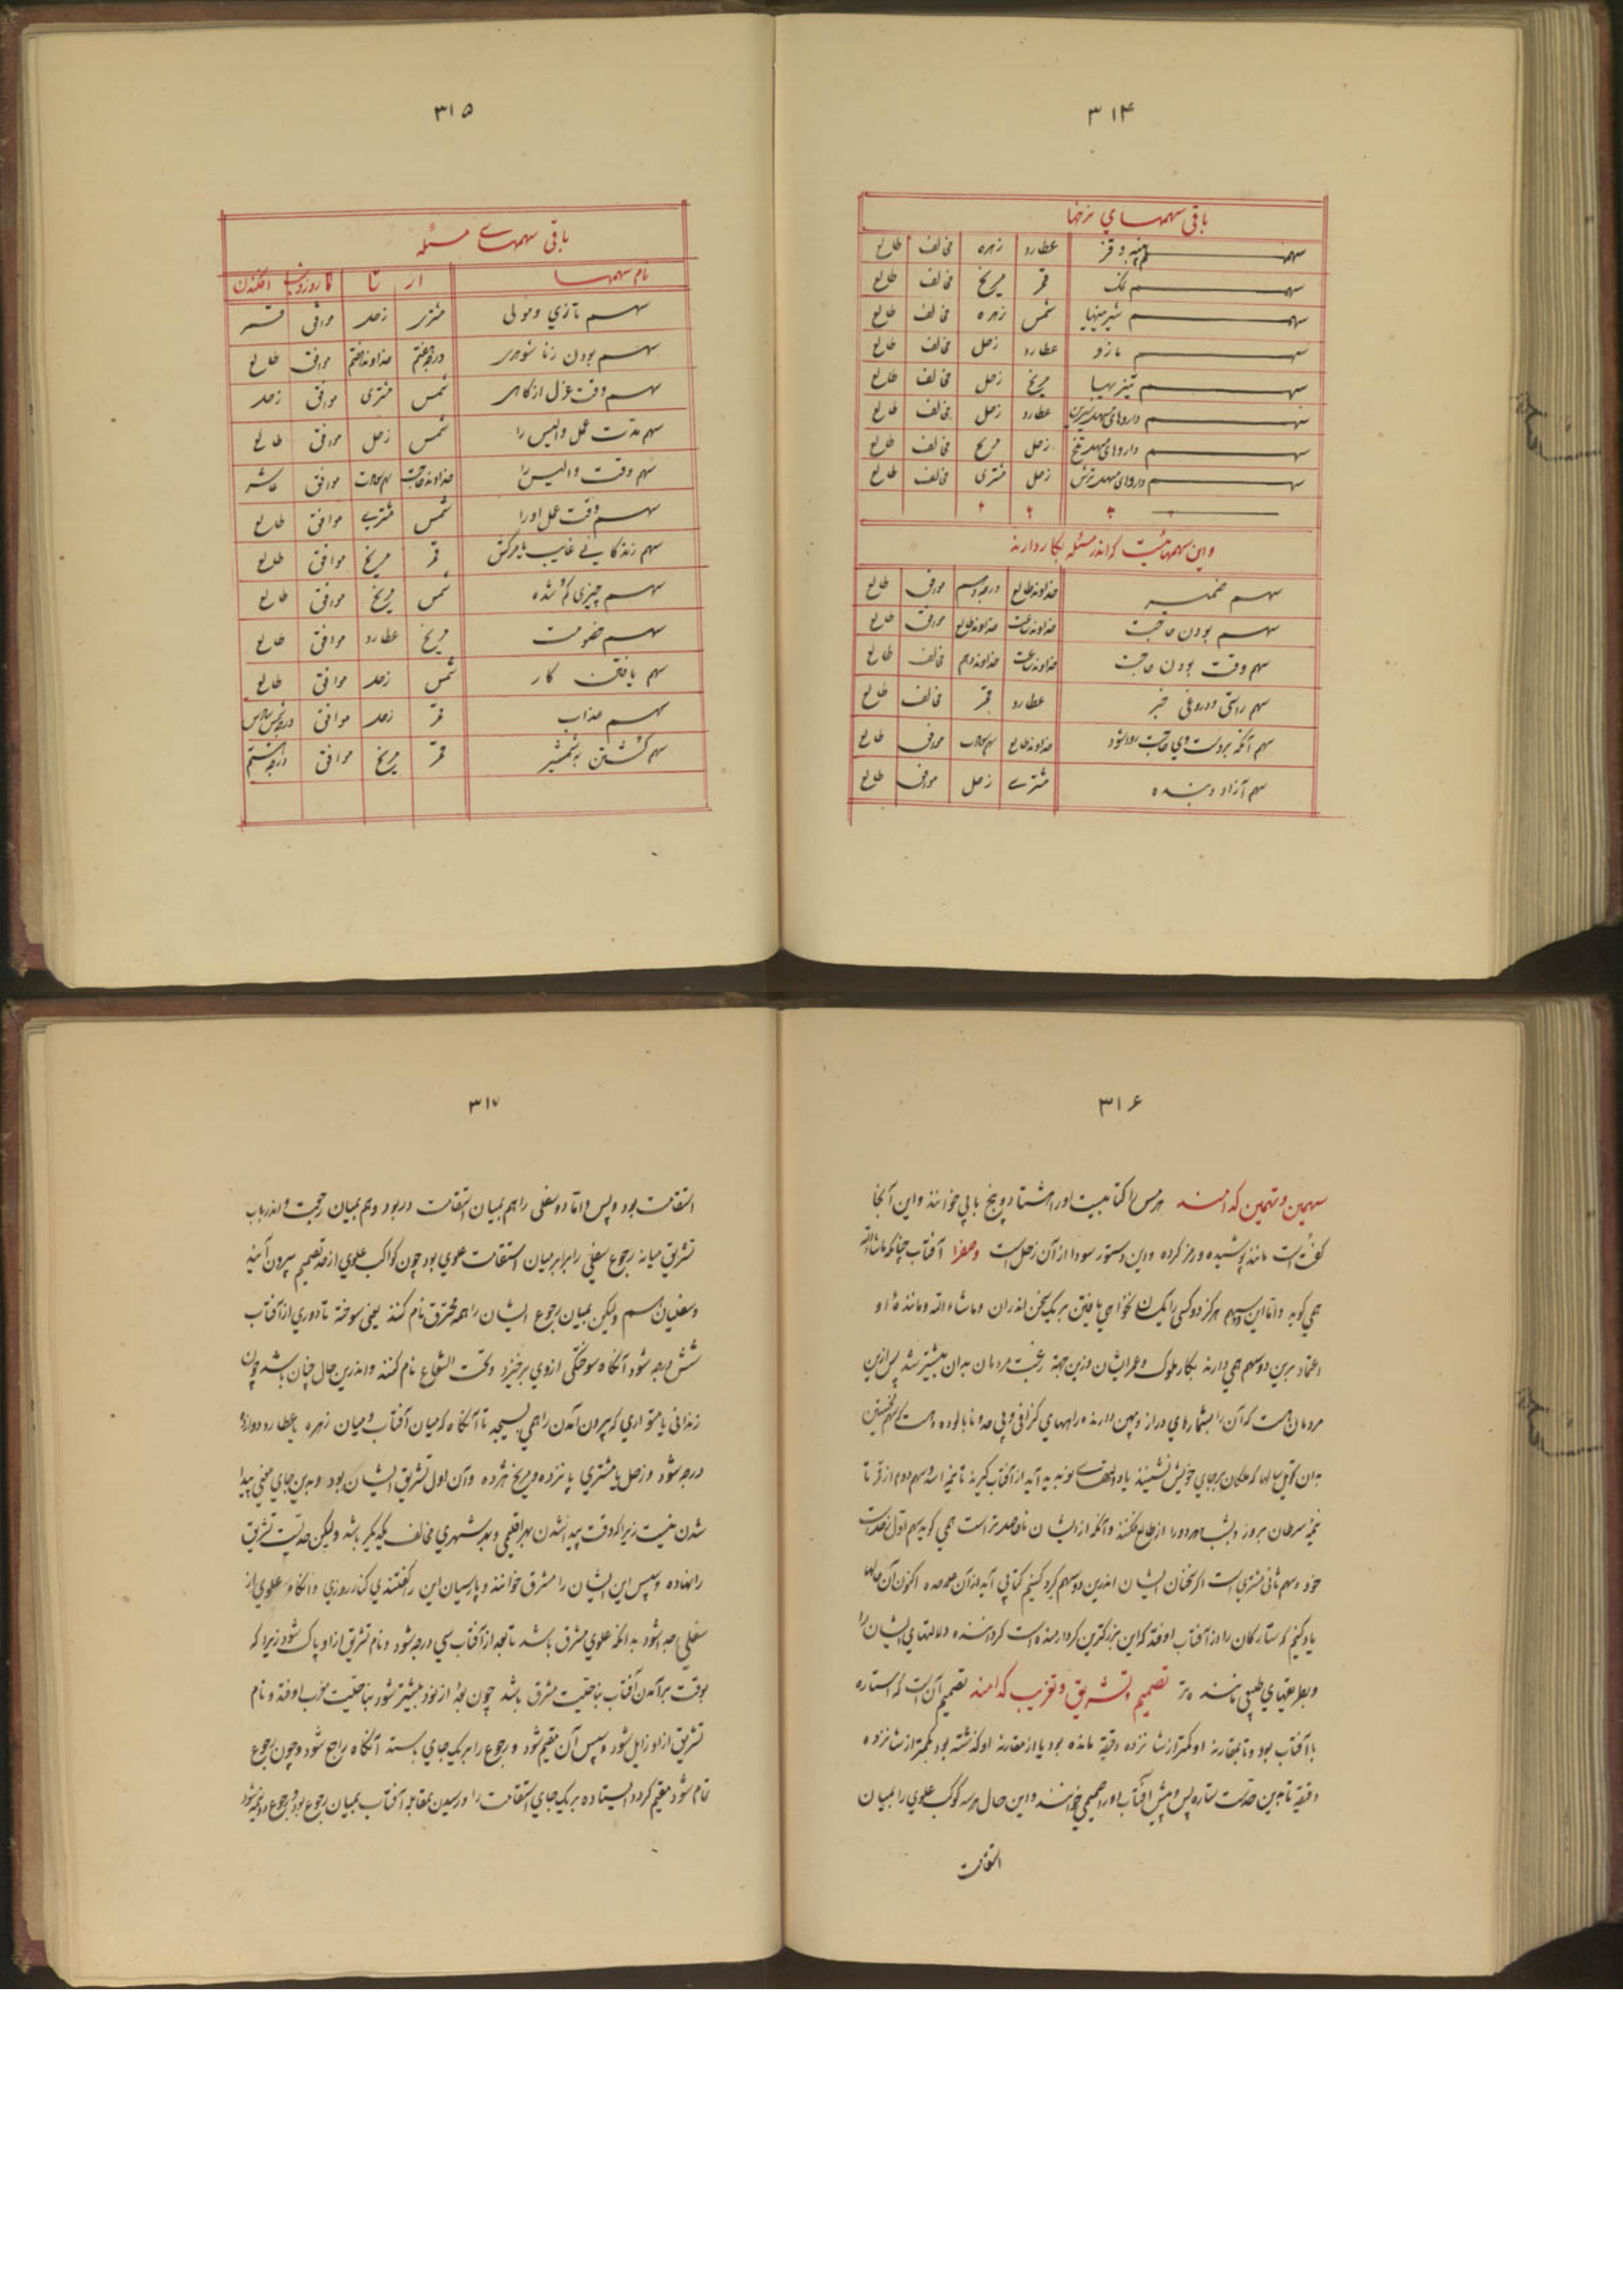 ۳۱۴
باقی سهمهای نرخها
سهم پنبه و قز عطارد زهره مخالف طالع
سهم نمک قمر مریخ مخالف طالع
سهم شیرینیها شمس زهره مخالف طالع
سهم مازو عطارد زحل مخالف طالع
سهم تیزیها مریخ زحل مخالف طالع
سهم داروهای مسهل شیرین عطارد زحل مخالف طالع
سهم داروهای مسهل تلخ زحل مریخ مخالف طالع
سهم داروهای مسهل ترش زحل مشتری مخالف طالع
و این سهمهائیست که اندر مسئله بکار دارند
سهم ضمیر خداوند طالع موافق طالع
سهم بودن حاجت خداوند ساعت خداوند طالع موافق طالع
سهم وقت بودن حاجت خداوند ساعت خداوند دهم مخالف طالع
سهم راستی و دروغی خبر عطارد قمر مخالف طالع
سهم آنکه بر دست وی حاجت روا شود خداوند طالع سهم سعادت موافق طالع
سهم آزاد و بنده مشتری زحل موافق طالع
۳۱۵
باقی سهمهاے مسئله
نام سهمها از تا تا روز و شب افکندن
سهم تازی و مولی مشتری زحل موافق قمر
سهم بودن زناشوهری درجه هفتم خداوند هفتم موافق طالع
سهم وقت عزل از کاهی شمس مشتری موافق زحل
سهم مدت عمل والیس را شمس زحل موافق طالع
سهم وقت والیس را خداوند حاجت سهم سعادت موافق عاشر
سهم وقت عمل او را شمس مشتری موافق طالع
سهم زندگانی غایب یا مرگش قمر مریخ موافق طالع
سهم چیزی گم شده شمس مریخ موافق طالع
سهم خصومت مریخ عطارد موافق طالع
سهم یافتن کار شمس زحل موافق طالع
سهم عذاب قمر زحل موافق
سهم کشتن بشمشیر قمر مریخ موافق درجه هشتم
۳۱۶
سهمین و تهمین کدامند هرمس را کتابیست او را هشتاد و پنج بابی خوانند و این آنجا
گفته است مانند پوشیده و رمز کرده و این دستور سودا از آن زحل است و صفرا آفتاب چنانکه ماشاءالله
همی گوید و اما این دو سهم هرگز دو کس را یکسان نخواهی یافتن بر یک سخن اندران و ماشاءالله و ماننده او
اعتماد برین دو سهم همی دارند بکار ملوک و عمر ایشان و زین جهت رغبت مردمان بدان بیشتر شد پس ازین
مردمان هست که آن را بشمارهای دراز و پهن دارند و راههای گزافی و بی حد و ناپالوده سهم نخستین
بدان تحویل سالها که ملکان بر جای خویش نشینند از آفتاب گیرند تا نیمه اسد و سهم دوم از قمر تا
نیمه سرطان بروز و بشب هر دو را از طالع افکنند و آنکه از ایشان فاضلتر است همی گوید سهم اول زحل است
خود و سهم ثانی مشتری است اگر سخنان ایشان اندرین دو سهم گرد کنیم کتابی آید از آن اکنون آن حالها
یاد کنیم که ستارگان را از آفتاب اوفتد که این بزرگترین کردارهاست گرداننده دلالتهای ایشان را
و بطریقهای طبیعی مانند تر تصمیم و تشریق و تغریب کدامند تصمیم آن است که ستاره
با آفتاب بود و تا بمقارنه او کمتر از شانزده دقیقه مانده بود یا از مقارنه او گذشته بود کمتر از شانزده
دقیقه تا بدین حد است ستاره پس و پیش آفتاب او را صمیمی خوانند و این حال هر سه کوکب علوی را بمیان
استقامت
۳۱۷
استقامت بود و بس و اما دو سفلی را هم بمیان استقامت در بود و هم بمیان رجعت و اندر باب
تشریق میانه رجوع سفلی را برابر میان استقامت علوی بود چون کواکب علوی از حد تصمیم بیرون آیند
و سفلیان هم ولیکن بمیان رجوع ایشان را همه محترق نام کنند یعنی سوخته تا دوری از آفتاب
شش درجه شود آنگاه سوختگی از وی برخیزد و تحت الشعاع نام کنند و اندرین حال چنان باشد چون
زندانی یا متواری که بیرون آمدن را همی بسیجد تا آنگاه که میان آفتاب و میان زهره یا عطارد دوازده
درجه شود و زحل یا مشتری پانزده و مریخ هژده و آن اول تشریق ایشان بود و بدین جای معنی پیدا
شدن نیست زیرا که وقت پیدا شدن بهر اقلیمی و بهر شهری مخالف یکدیگر باشد ولیکن حدیست تشریق
را نهاده و سپس این ایشان را مشرق خوانند و پارسیان این را گفتندی کنار روزی و آنگاه علوی از
سفلی جدا شود بدانکه علوی مشرق باشد تا بعد از آفتاب سی درجه شود و نام تشریق از او پاک شود زیرا که
بوقت برآمدن آفتاب بناحیت مشرق باشد چون بعد از نود بیشتر شود بناحیت مغرب اوفتد و نام
تشریق از او زایل شود و سپس آن مقیم شود و رجوع را بر یک جای بایستد آنگاه راجع شود و چون رجوع
تمام شود مقیم گردد ایستاده بر یک جای استقامت را و رسیدن بمقابله آفتاب بمیان رجوع بود و رجوع دو نیمه شود